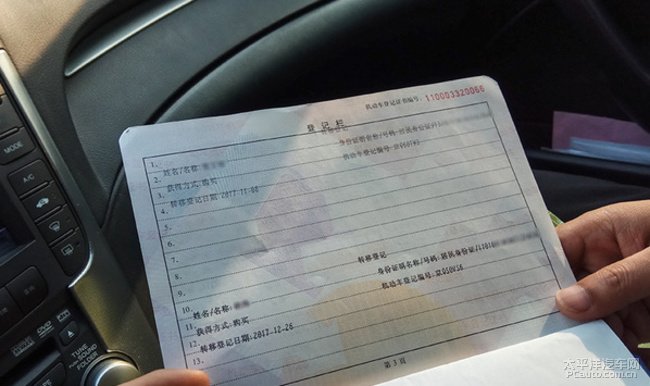 机动车登记证书编号: 110003320066
登记栏
1.
转移登记
2. 姓名/名称: 身份证明名称/号码: 居民身份证/
3. 获得方式: 购买 机动车登记编号:
4. 转移登记日期: 2017-11-08
5.
6.
7.
8.
9. 转移登记
10. 姓名/名称: 身份证明名称/号码: 居民身份证/
11. 获得方式: 购买 机动车登记编号:
12. 转移登记日期: 2017-12-26
13.
第 3 页
MODE
A/C
DVD
TUNE
SOUND
FOLDER
太平洋汽车网
PCauto.com.cn